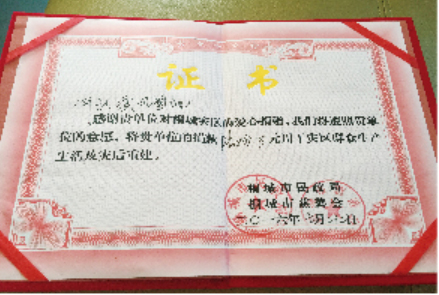 证书
感谢贵单位对桐城灾区的爱心捐赠,我们将遵照贵单
位的意愿,将贵单位的捐款 元用于灾区群众生产
生活及灾后重建。
桐城市民政局
桐城市慈善会
二〇一六年七月 日